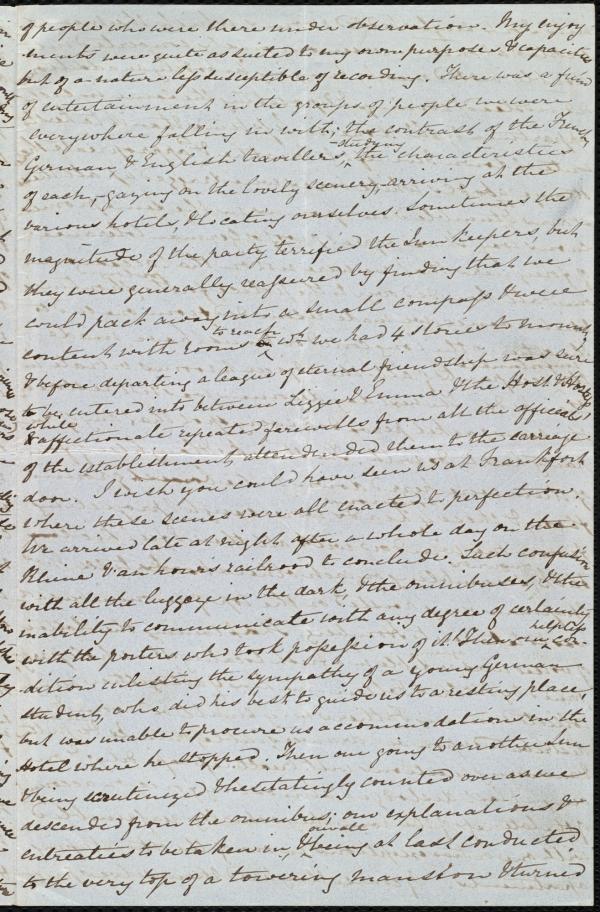 of people who were there under observation. My enjoy
ments were quite as suited to my own purposes & capacities
but of a nature less susceptible of recording. There was a fund
of entertainment in the groups of people we were
everywhere falling in with; the contrast of the French
German & English travellers, -studying the characteristics
of each,- gazing on the lovely scenery, arriving at the
various hotels, & locating ourselves. Sometimes the
magnitude of the party terrified the Inn keepers, but
they were generally reassured by finding that we
could pack away into a small compass & were
content with rooms to reach wh. we had 4 stories to mount,
& before departing a league of eternal friendship was sure
to be entered into between Lizzie & Emma & the Host & Hostess
while & affectionate repeated farewells from all the officials
of the establishment attended them to the carriage
door. I wish you could have seen us at Frankfort
where these scenes were all enacted to perfection.
We arrived late at night after a whole day on the
Rhine & an hour's railroad to conclude. Such confusion
with all the luggage in the dark, & the omnibuses, & the
inability to communicate with any degree of certainty
with the porters who took possession of it! Then our helpless con-
dition enlisting the sympathy of a young German
student, who did his best to guide us to a resting place,
but was unable to procure us accommodation in the
Hotel where he stopped. Then our going to another Inn
& being scrutinized & hesitatingly counted over as we
descended from the omnibus; our explanations &
entreaties to be taken in, & being at last conducted
to the very top of a towering mansion & turned